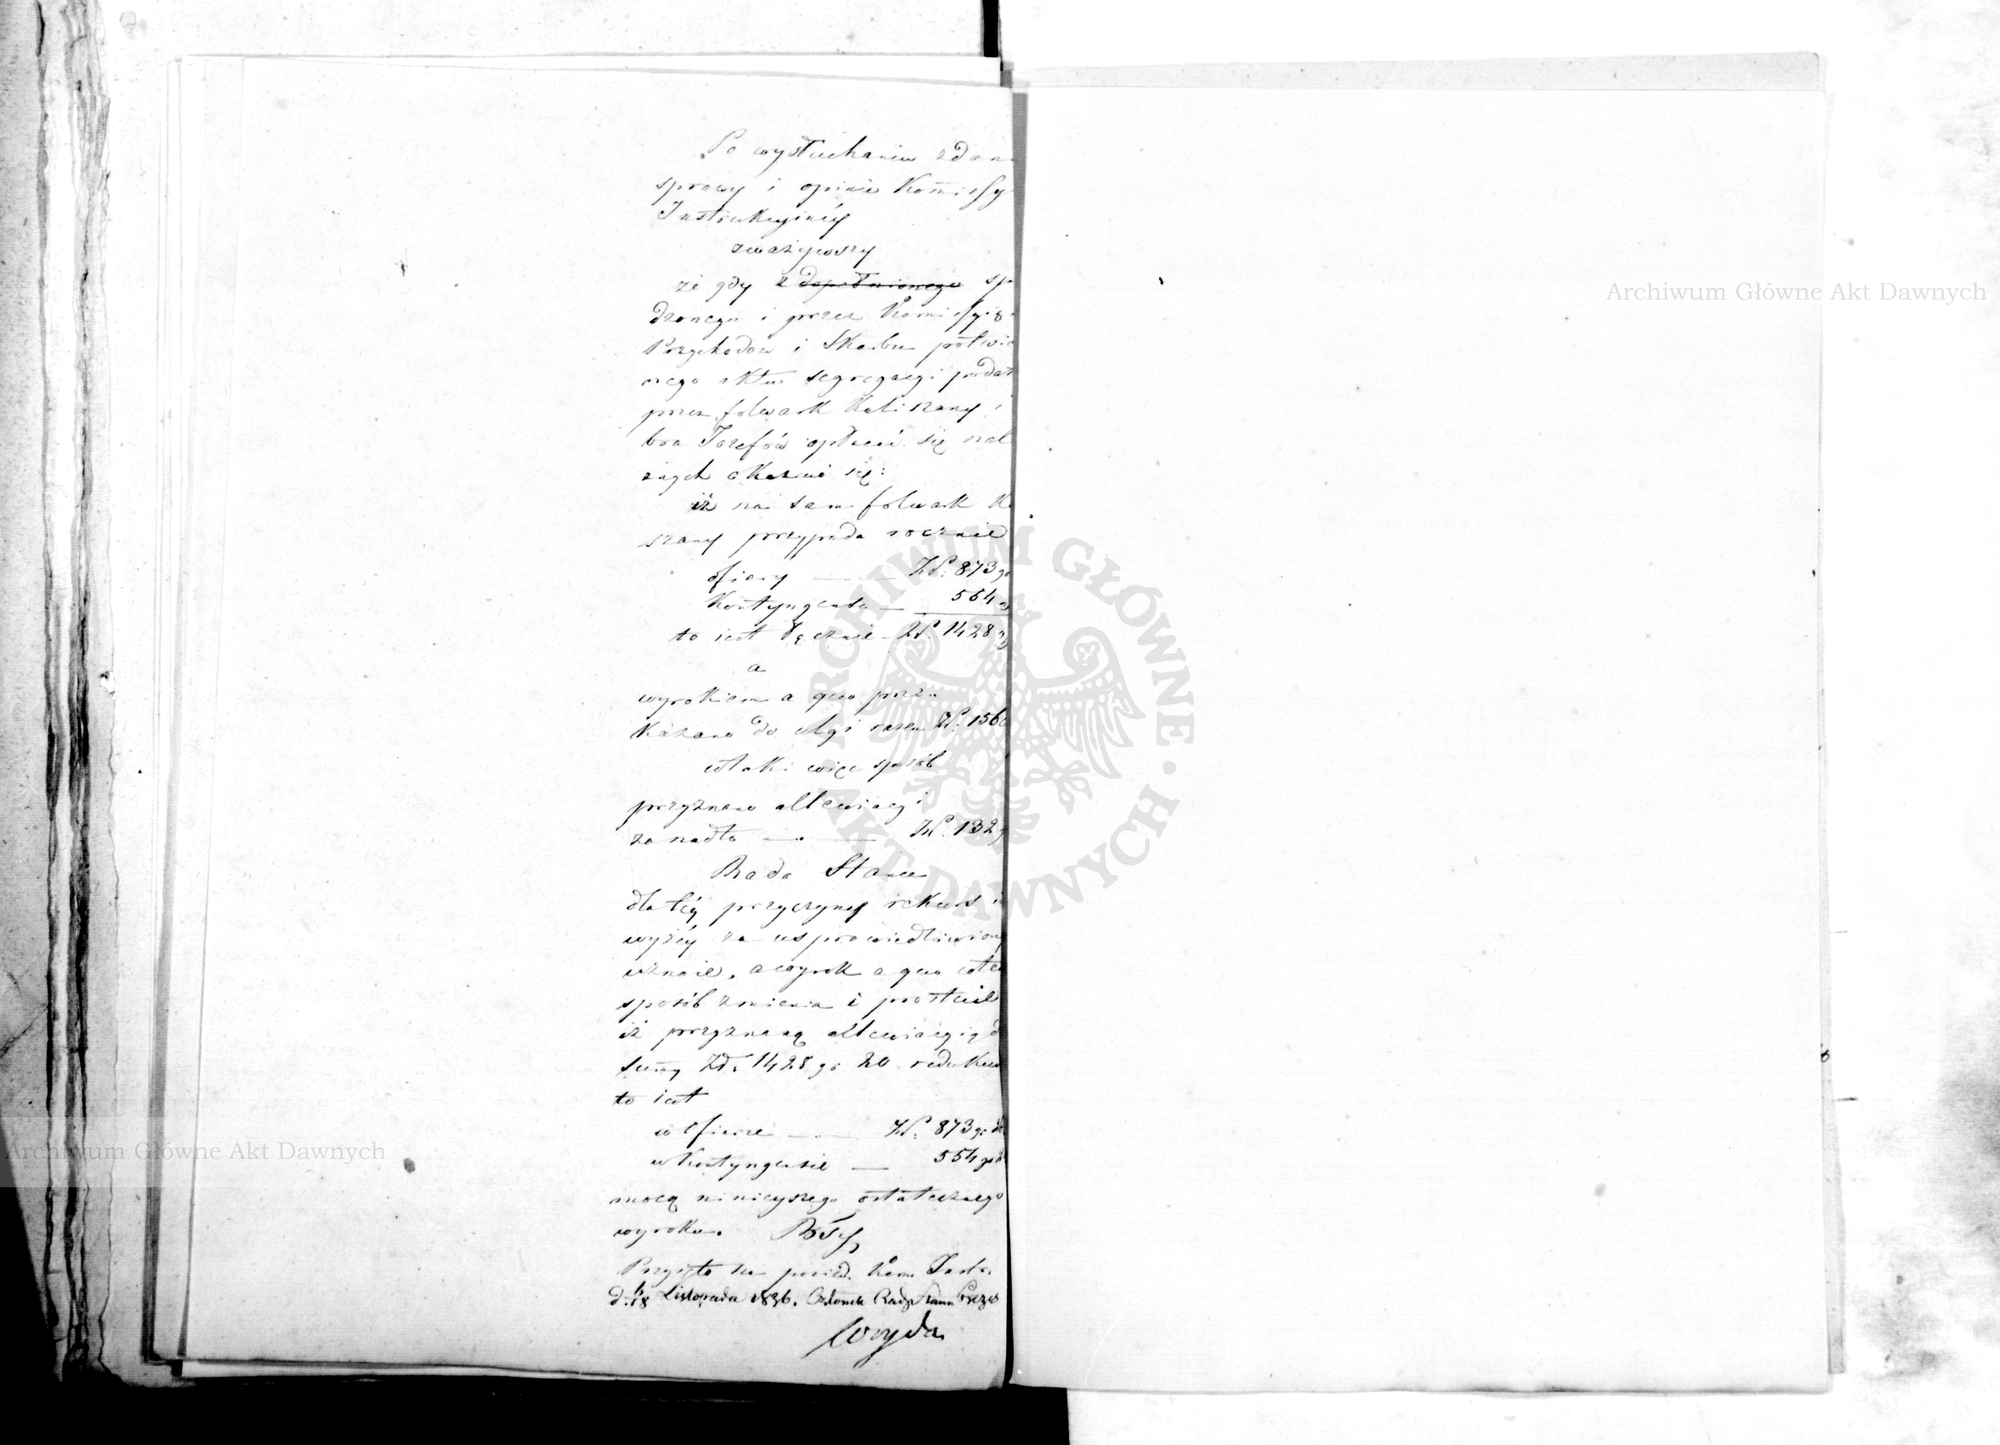 Po wysłuchaniu zdan
sprawy i opinii Kommissy
Instrukcyinéy
zważywszy
że gdy z dopełnionego sp
dzonego i przez Kommissyę
Przychodów i Skarbu potwie
nego aktu segregacyi podat
przez folwark Kaliszany i
bra Józefów opłacać się nal
żnych okazuie się:
iż na sam folwark Ka
szany przypada rocznie
ofiary — Zł: 873 g
Kontyngensu — 554 g
to iest łącznie — Zł. 1428 g
a
wyrokiem a quo prze
kazano do ulgi razem Zł. 156
w taki więc sposób
przyznano allewiacyi
za nadto — Zł. 132 g
Rada Stanu
dla téy przyczyny rekurs
wyżéy za usprawiedliwiony
uznaie, a wyrok a quo w te
sposób zmienia i prostuie
iż przyznaną allewiacyią d
summy Zł. 1428 gr 20 redukuie
to iest
w ofierze — Zł. 873 g:
w Kontyngensie — 554 gr
mocą ninieyszego ostatecznego
wyroku.
Przyięto na posied. Kom. Instr.
d. 18 Listopada 1836. Członek Rady Stanu Prezes
Woyda
Archiwum Główne Akt Dawnych
Archiwum Główne Akt Dawnych
ARCHIWUM GŁÓWNE AKT DAWNYCH